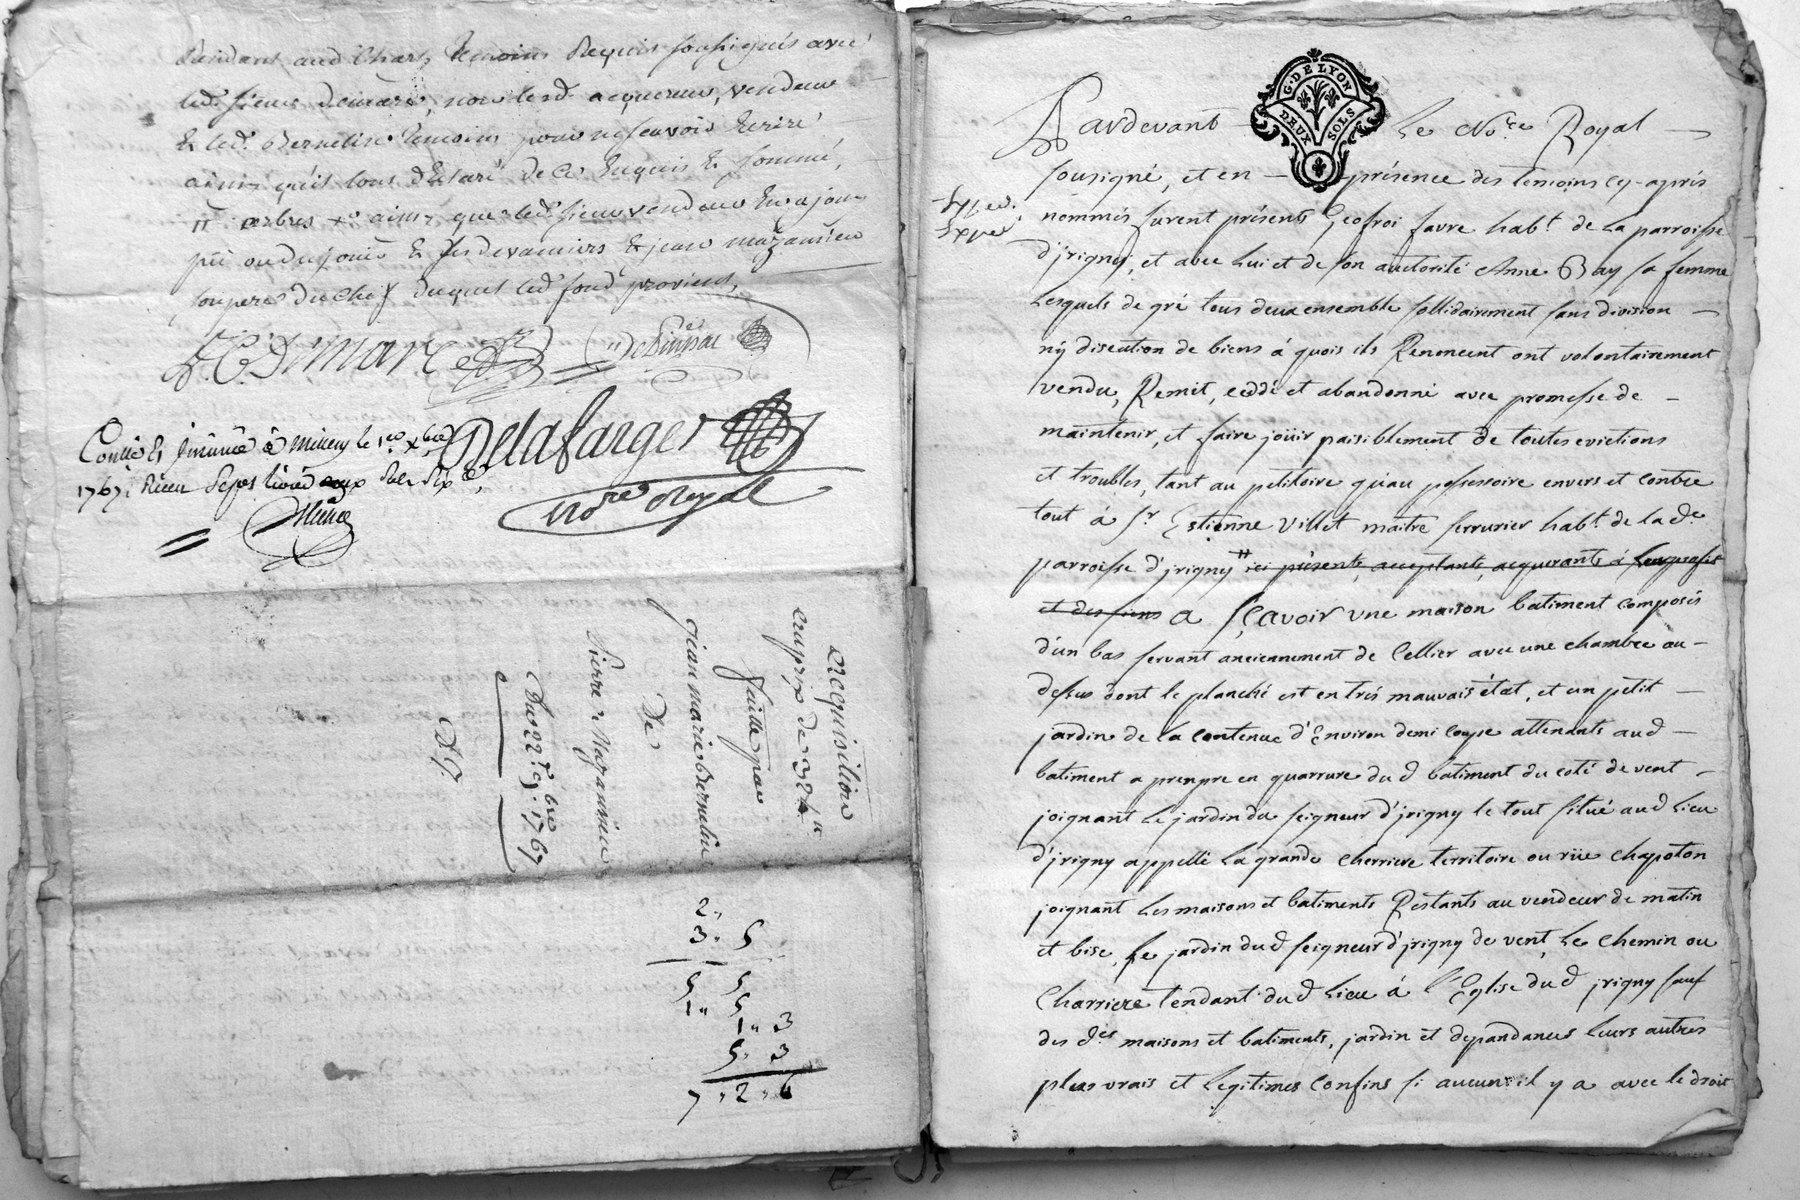 temoins Requis soussignés avec
led. sieur acquereur, vendeur
& led. Bernelin temoins pour ne scavoir Ecrire
ainsi qu'ils tous déclaré de ce Enquis & sommé,
arbres ainsi que led. sieur vendeur
& ses devanciers & jean mazanieu
son pere du chef duquel led. fond provient,
Delafarge
No.re Royal
Con.lé & insinué à millery le 1.er X.bre
1767,
Acquisition
au prix de 384.ll
faitte par
jean marie Bernelin
De
Pierre Mazanieu
Du 22.e 9.bre 1767
2,
3, 5
5 5
1" 5
1" 3
5, 3
7, 2, 6
G. DE LYON
DEUX SOLS
Pardevant Le No.re Royal
sousigné, et en présence des temoins cy-aprés
nommés furent présents Geofroi favre hab.t de La parroisse
d'jrigny, et avec Lui et de son auctorité Anne Bay sa femme
Lesquels de gré tous deux ensemble sollidairement sans division
ny discution de biens á quois ils Renoncent ont volontairement
vendu, Remit, ceddé et abandonné avec promesse de
maintenir, et faire joüir paisiblement de toutes evictions
et troubles, tant au petitoire qu'au possessoire envers et contre
tout á S.r Estienne Villet maitre serrurier hab.t de la d.e
parroisse d'jrigny # ici présents, acceptants, acquerants á Leur profit
et des siens a sçavoir une maison batiment composés
d'un bas servant anciennement de Cellier avec une chambre au-
dessus dont le planché est en trés mauvais état, et un petit
jardin de la contenue d'Environ demi coupe attenants aud
batiment a prenpre en quarrure du d batiment du coté de vent
joignant Le jardin du seigneur d'jrigny le tout situé aud Lieu
d'jrigny appellé La grande Cherriere territoire ou rüe chapoton
joignant Les maisons et batiments Restants au vendeur de matin
et bise, Le jardin dud seigneur d'jrigny de vent, Le chemin ou
Charriere tendant dud Lieu á l'Eglise dud jrigny sauf
des d.es maisons et batiments, jardin et depandances Leurs autres
plus vrais et Legitimes confins si aucuns il y a avec le droit